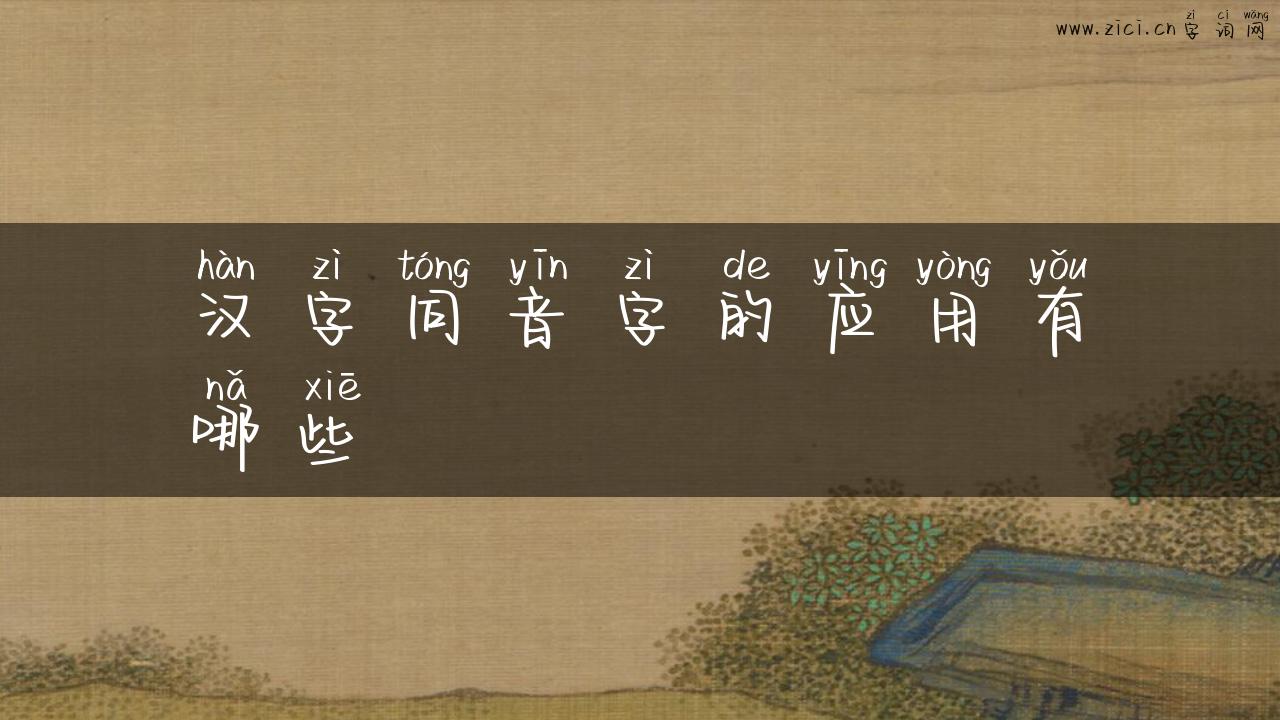 zì cí wǎng
www.zici.cn 字 词 网
hàn zì tóng yīn zì de yīng yòng yǒu
汉 字 同 音 字 的 应 用 有
nǎ xiē
哪 些